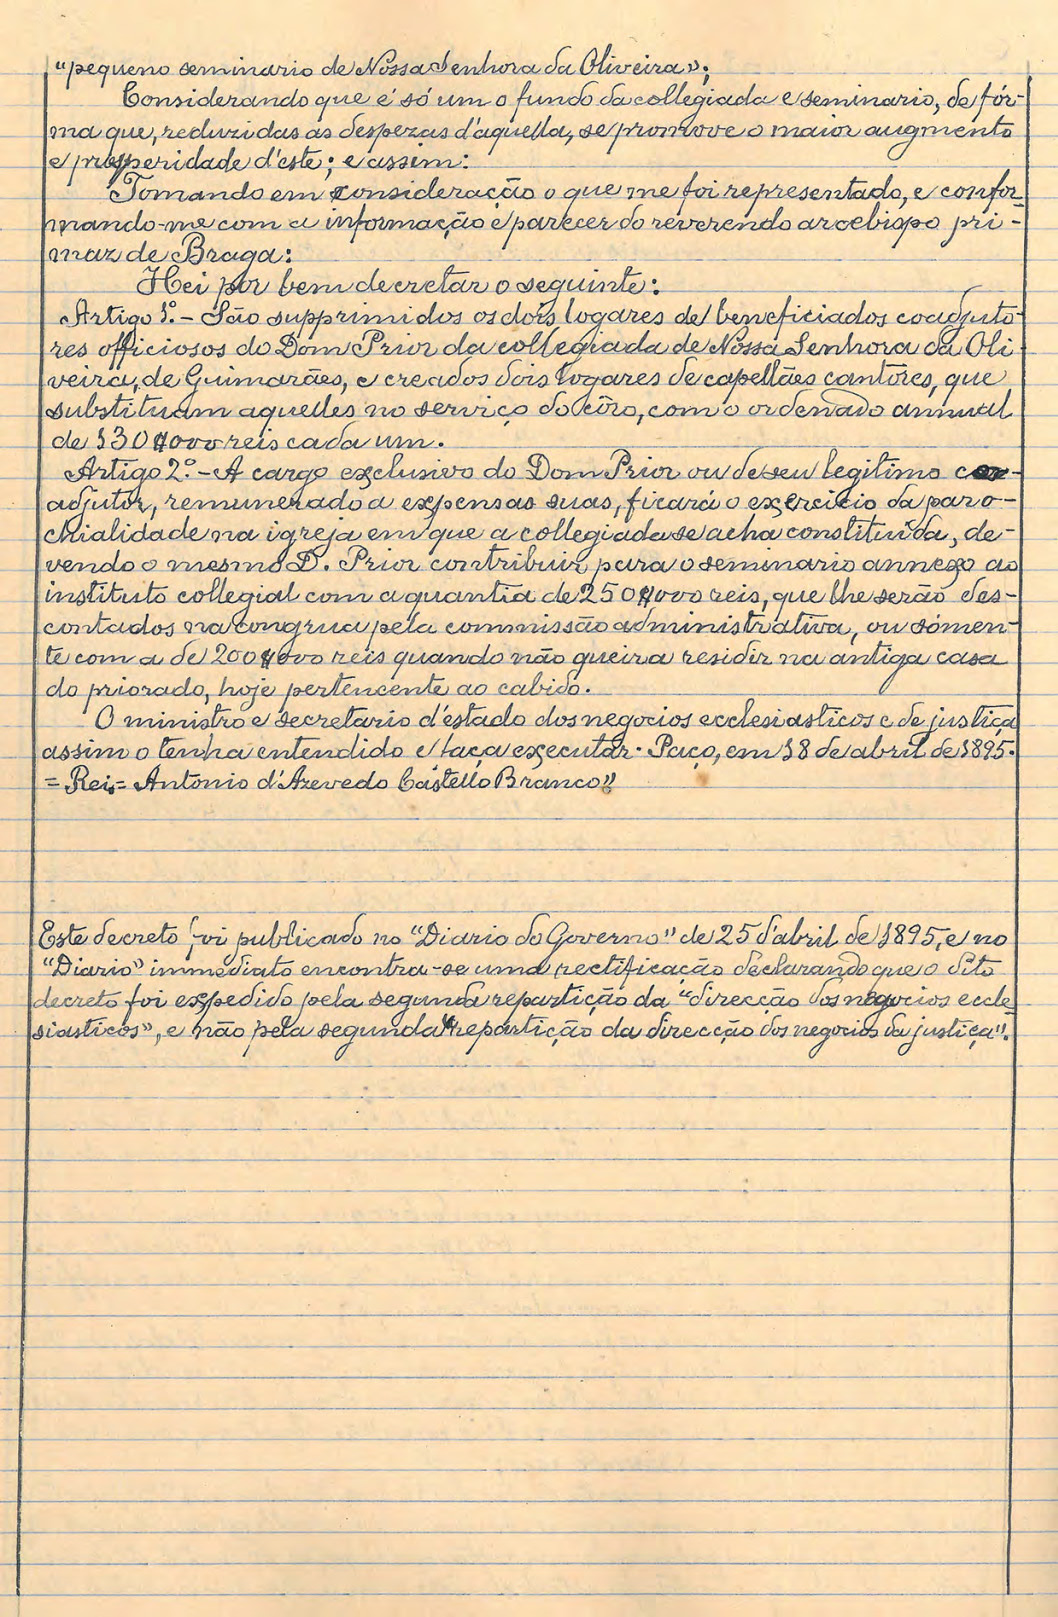 "pequeno seminario de Nossa Senhora da Oliveira";
Considerando que é só um o fundo da collegiada e seminario, de fór-
ma que, reduzidas as despezas d'aquella, se promove o maior augmento
e prosperidade d'este; e assim:
Tomando em consideração o que me foi representado, e confor-
mando-me com a informação e parecer do reverendo arcebispo pri-
maz de Braga:
Hei por bem decretar o seguinte:
Artigo 1.º - São supprimidos os dois logares de beneficiados coadjuto-
res officiosos do Dom Prior da collegiada de Nossa Senhora da Oli
veira, de Guimarães, e creados dois logares de capellães cantores, que
substituam aquelles no serviço do côro, com o ordenado annual
de 130$000 reis cada um.
Artigo 2.º - A cargo exclusivo do Dom Prior ou de seu legitimo co-
adjutor, remunerado a expensas suas, ficará o exercicio da paro-
chialidade na igreja em que a collegiada se acha constituida, de-
vendo o mesmo D. Prior contribuir para o seminario annexo ao
instituto collegial com a quantia de 250$000 reis, que lhe serão des-
contados na congrua pela commissão administrativa, ou sómen-
te com a de 200$000 reis quando não queira residir na antiga casa
do priorado, hoje pertencente ao cabido.
O ministro e secretario d'estado dos negocios ecclesiasticos e de justiça
assim o tenha entendido e faça executar. Paço, em 18 de abril de 1895.
= Rei = Antonio d'Azevedo Castello Branco"
Este decreto foi publicado no "Diario do Governo" de 25 d'abril de 1895, e no
"Diario" immediato encontra-se uma rectificação declarando que o dito
decreto foi expedido pela segunda repartição da "direcção dos negocios eccle
siasticos", e não pela segunda "repartição da direcção dos negocios da justiça".